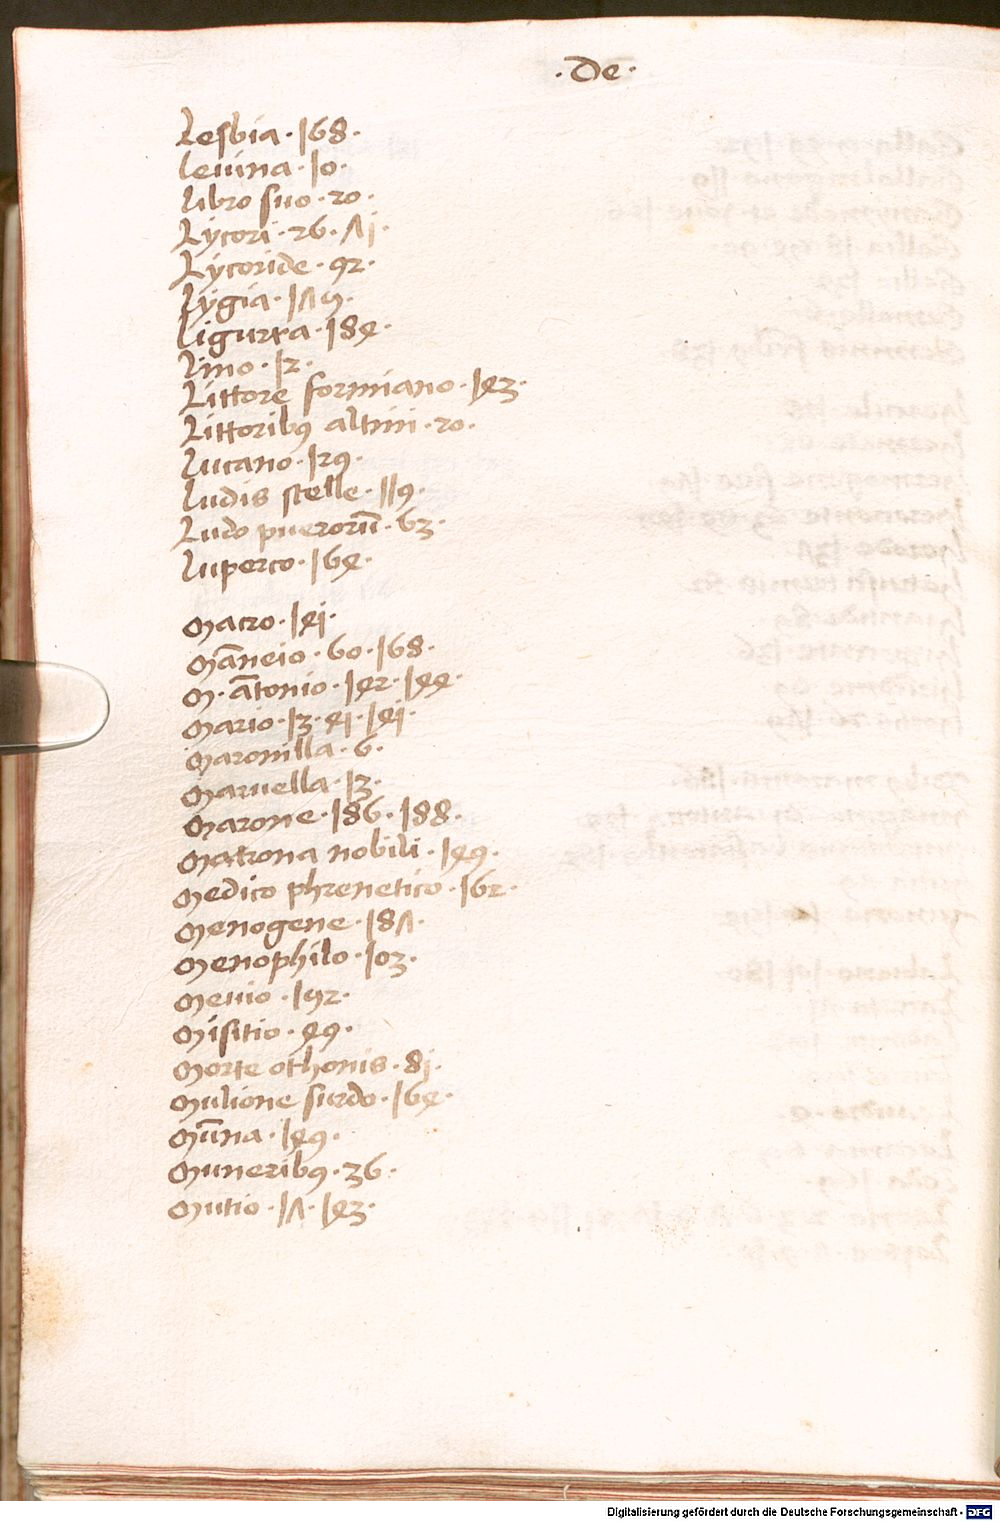 ·De·
Lesbia·168·
Leuina·10·
Libro suo·20·
Lycori·26·71·
Lycoride·92·
Lygia·179·
Ligurra·184·
Lino·12·
Littore formiano·143·
Littoribꝯ altini·20·
Lucano·129·
Ludis stelle·119·
Ludo puerorū·63·
Luperco·164·
Macro·141·
Mācino·60·168·
M·ātonio·142·144·
Mario·13·41·141·
Maronilla·6·
Maruella·13·
Marone·186·188·
Matrona nobili·149·
Medico phrenetico·162·
Menogene·187·
Menophilo·103·
Meuio·192·
Misitio·49·
Morte othonis·81·
Mulione surdo·164·
Mūna·149·
Muneribꝯ·36·
Mutio·17·143·
Digitalisierung gefördert durch die Deutsche Forschungsgemeinschaft - DFG